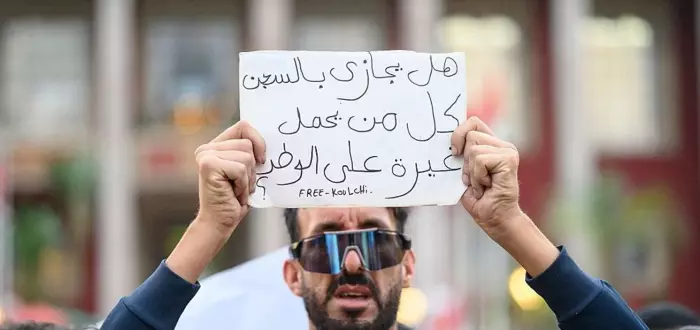 هل يجازى بالسجن
كل من يحمل
غيرة على الوطن
؟
FREE-KOULCHi.